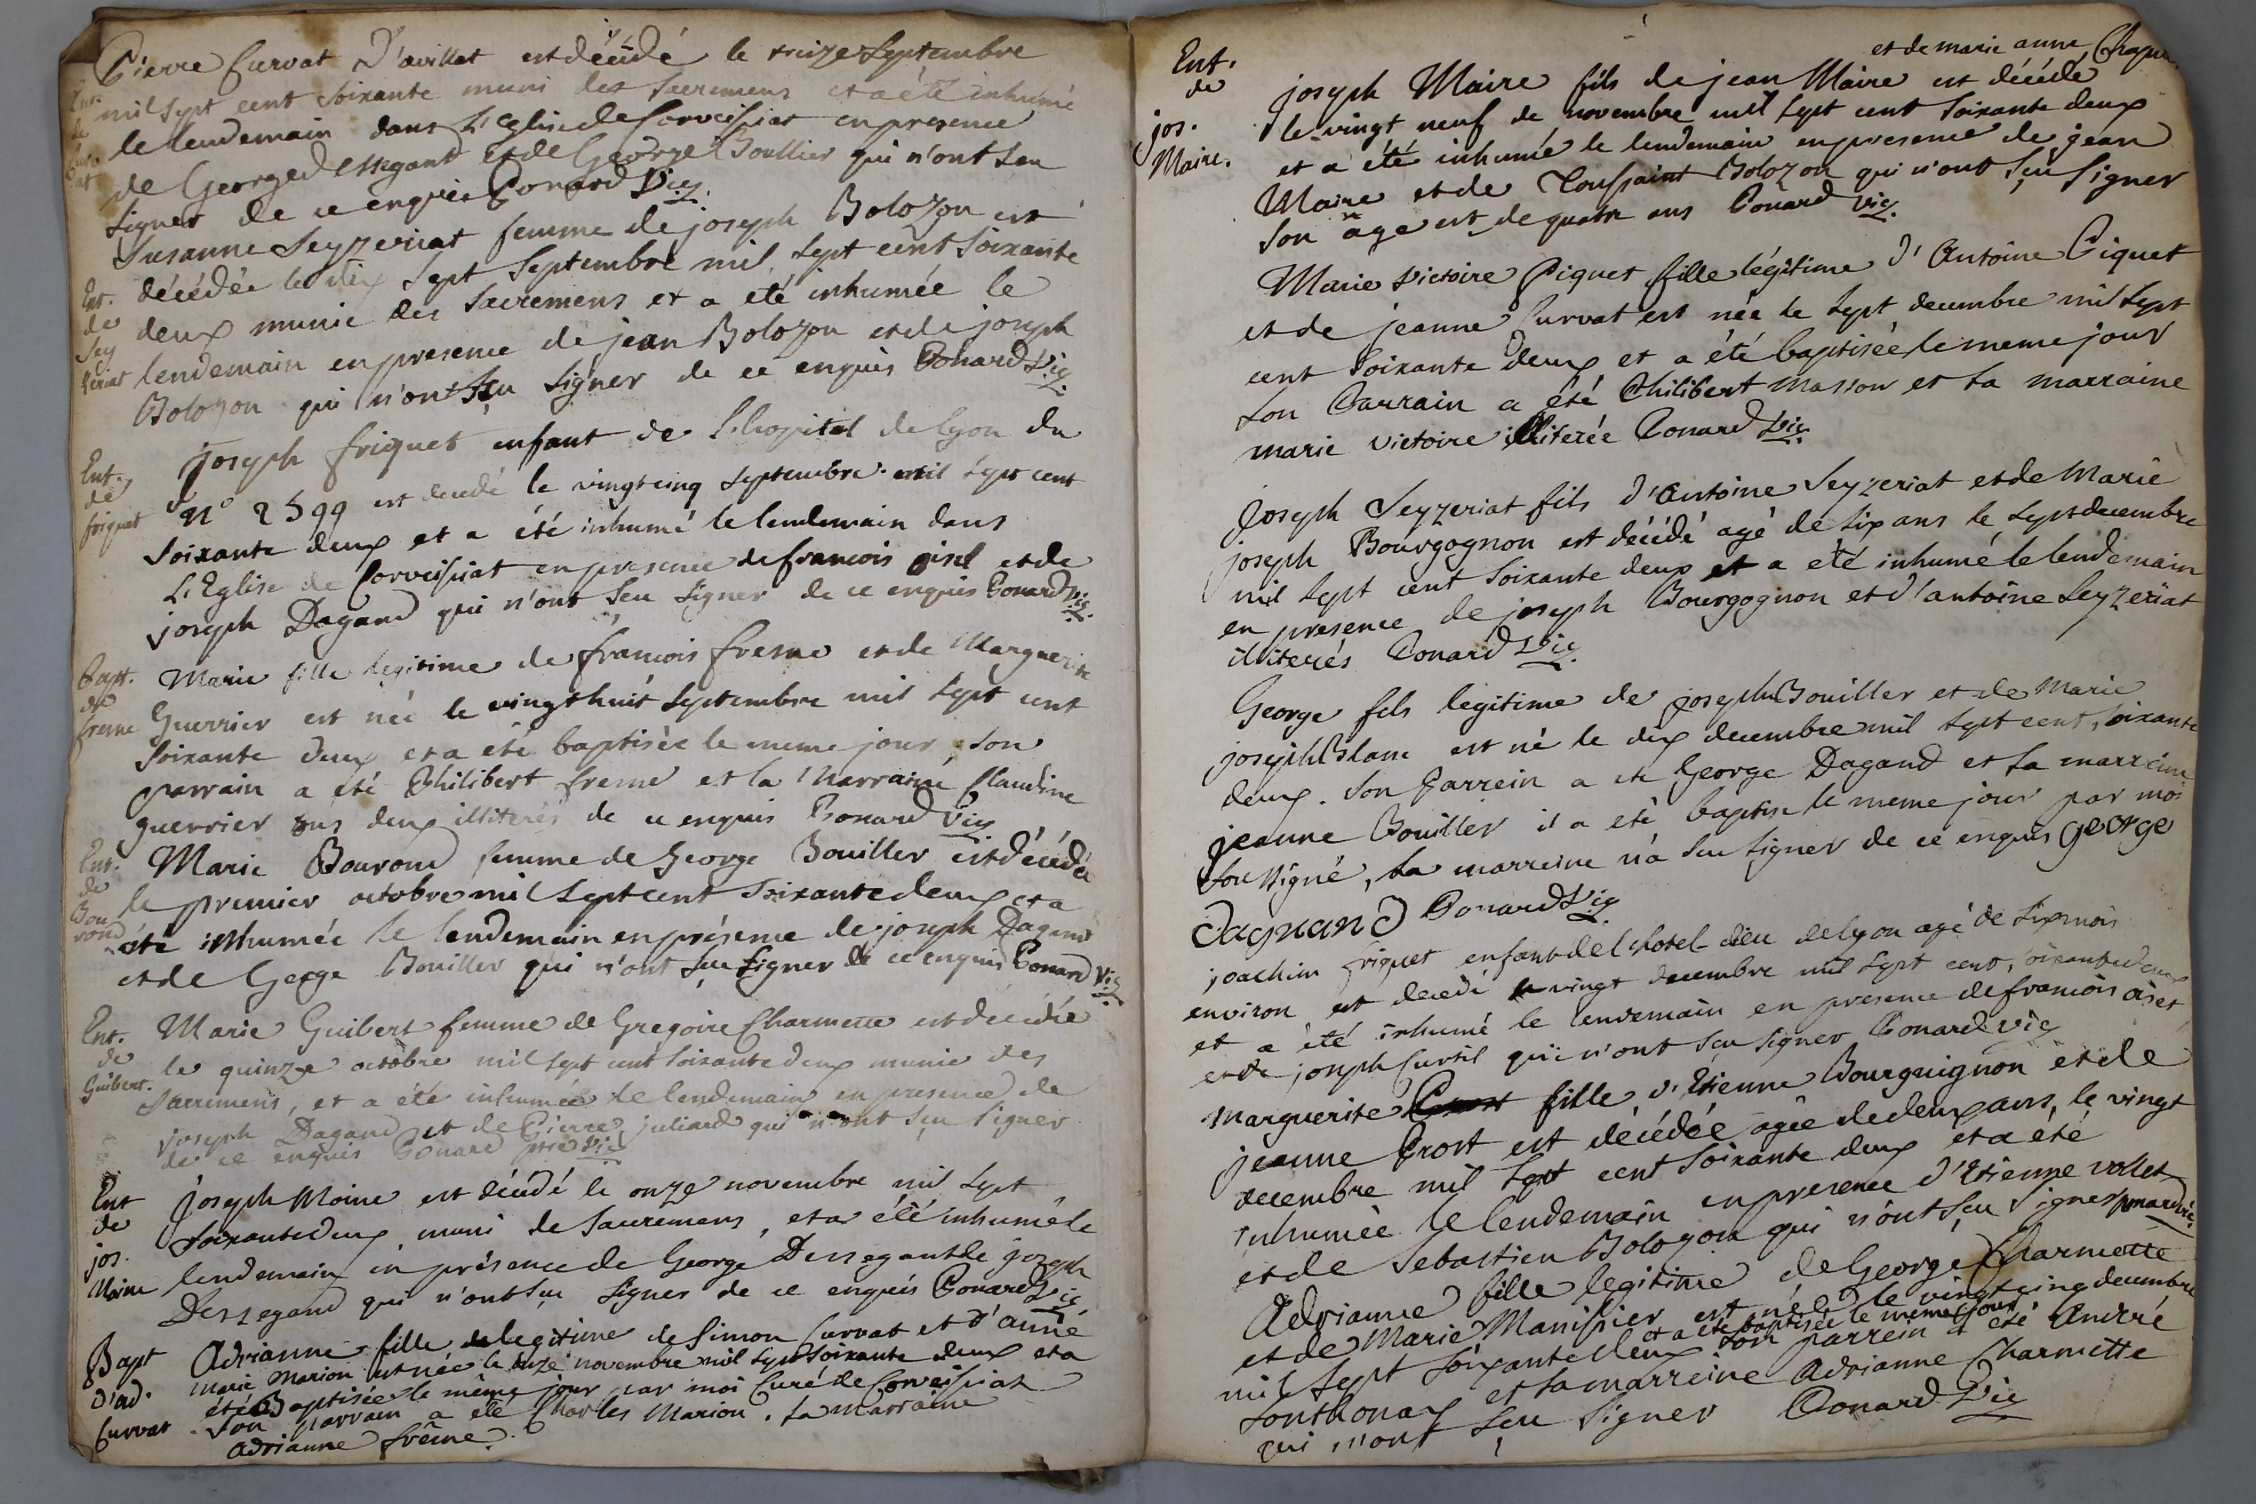 Pierre Curvat D'avillat est décédé le treize Septembre
Ent.
de
Cur
vat
mil sept cent soixante muni des sacremens et a été inhumé
le lendemain dans L'Eglise de Corveissiat en presence
de George Dessegand et de George Boullier qui n'ont seu
signer de ce enquis Gonard Vic.
Ent.
de
Sey
zeriat
Susanne Seyzeriat femme de joseph Bolozon est
décédée le dix sept Septembre mil sept cent soixante
deux munie des sacremens et a été inhumée le
lendemain en presence de jean Bolozon et de joseph
Bolozon qui n'ont seu signer de ce enquis Gonard Vic.
Ent.
de
friquet
joseph friquet enfant de l'hopital de Lyon du
N° 2599 est decedé le vingt cinq septembre mil sept cent
soixante deux et a été inhumé le lendemain dans
L'Eglise de Corveissiat en presence de francois oisel et de
joseph Dagand qui n'ont seu signer de ce enquis Gonard Vic.
Bapt.
de
fresne
Marie fille legitime de francois fresne et de Marguerite
Guerrier est née le vingt huit septembre mil sept cent
soixante deux et a été baptisée le meme jour son
parrain a été Philibert fresne et la Marraine Claudine
guerrier tous deux illiterés de ce enquis Gonard Vic
Ent.
de
Bou
rond
Marie Bourond femme de George Bouiller est décédée
le premier octobre mil sept cent soixante deux et a
été inhumée le lendemain en présence de joseph Dagand
et de George Bouiller qui n'ont seu signer de ce enquis Gonard Vic
Ent.
de
Guibert.
Marie Guibert femme de Gregoire Charmette est décédée
le quinze octobre mil sept cent soixante deux munie des
sacremens, et a été inhumée le lendemain en presence de
joseph Dagand et de Pierre juliard qui n'ont seu signer
de ce enquis Gonard ptre Vic
Ent
de
jos.
Moine
joseph Moine est décédé le onze novembre mil sept
soixante deux muni de sacremens, et a été inhumé le
lendemain en présence de George Dessegant de joseph
Dessegand qui n'ont seu signer de ce enquis Gonard Vic
Bapt
d'ad.
Curvat
Adrianne fille legitime de Simon Curvat et d'anne
marie Marion est née le onze novembre mil sept soixante deux et a
été Baptisée le même jour par moi Curé de Corveissiat
son parrain a été Charles Marion. sa marraine
adrianne frêne.
Ent.
de
jos.
Maire.
et de marie anne Chapu
joseph Maire fils de jean Maire est décédé
le vingt neuf de novembre mil sept cent soixante deux
et a été inhumé le lendemain en presence de jean
Maire et de Toussaint Bolozon qui n'ont seu signer
son age est de quatre ans Gonard vic.
Marie victoire Piquet fille légitime d'Antoine Piquet
et de jeanne Curvat est née le sept decembre mil sept
cent soixante deux et a été baptisée le meme jour
son Parrain a été Philibert Masson et sa marraine
marie victoire illiterée Gonard Vic.
joseph Seyzeriat fils d'Antoine Seyzeriat et de Marie
joseph Bourgognon est décédé agé de six ans le sept decembre
mil sept cent soixante deux et a été inhumé le lendemain
en presence de joseph Bourgognon et d'antoine Seyzeriat
illiterés Gonard Vic.
George fils legitime de joseph Bouiller et de Marie
joseph Blanc est né le dix decembre mil sept cent soixante
deux. son Parrein a été George Dagand et sa marreine
jeanne Bouiller il a été baptisé le meme jour par moi
soussigné, la marreine n'a seu signer de ce enquis george
dagnand Gonard Vic
joachim friquet enfant de l'hotel-dieu de lyon agé de six mois
environ est decedé le vingt decembre mil sept cent soixante deux
et a été inhumé le lendemain en presence de francois oiset
et de joseph Curtil qui n'ont seu signer Gonard vic
Marguerite fille d'Etienne Bourguignon et de
jeanne Prost est décédée agée de deux ans, le vingt
decembre mil sept cent soixante deux et a été
inhumée le lendemain en presence d'Etienne vollet
et de Sebastien Bolozon qui n'ont seu signer Gonard vic.
Adrianne fille legitime de George Charmette
et de Marie Manissier est née le vingt cinq decembre
et a été baptisée le meme jour
mil sept soixante deux son parrein a été André
Sonthonax et sa marreine Adrianne Charmette
qui n'ont seu signer Gonard Vic